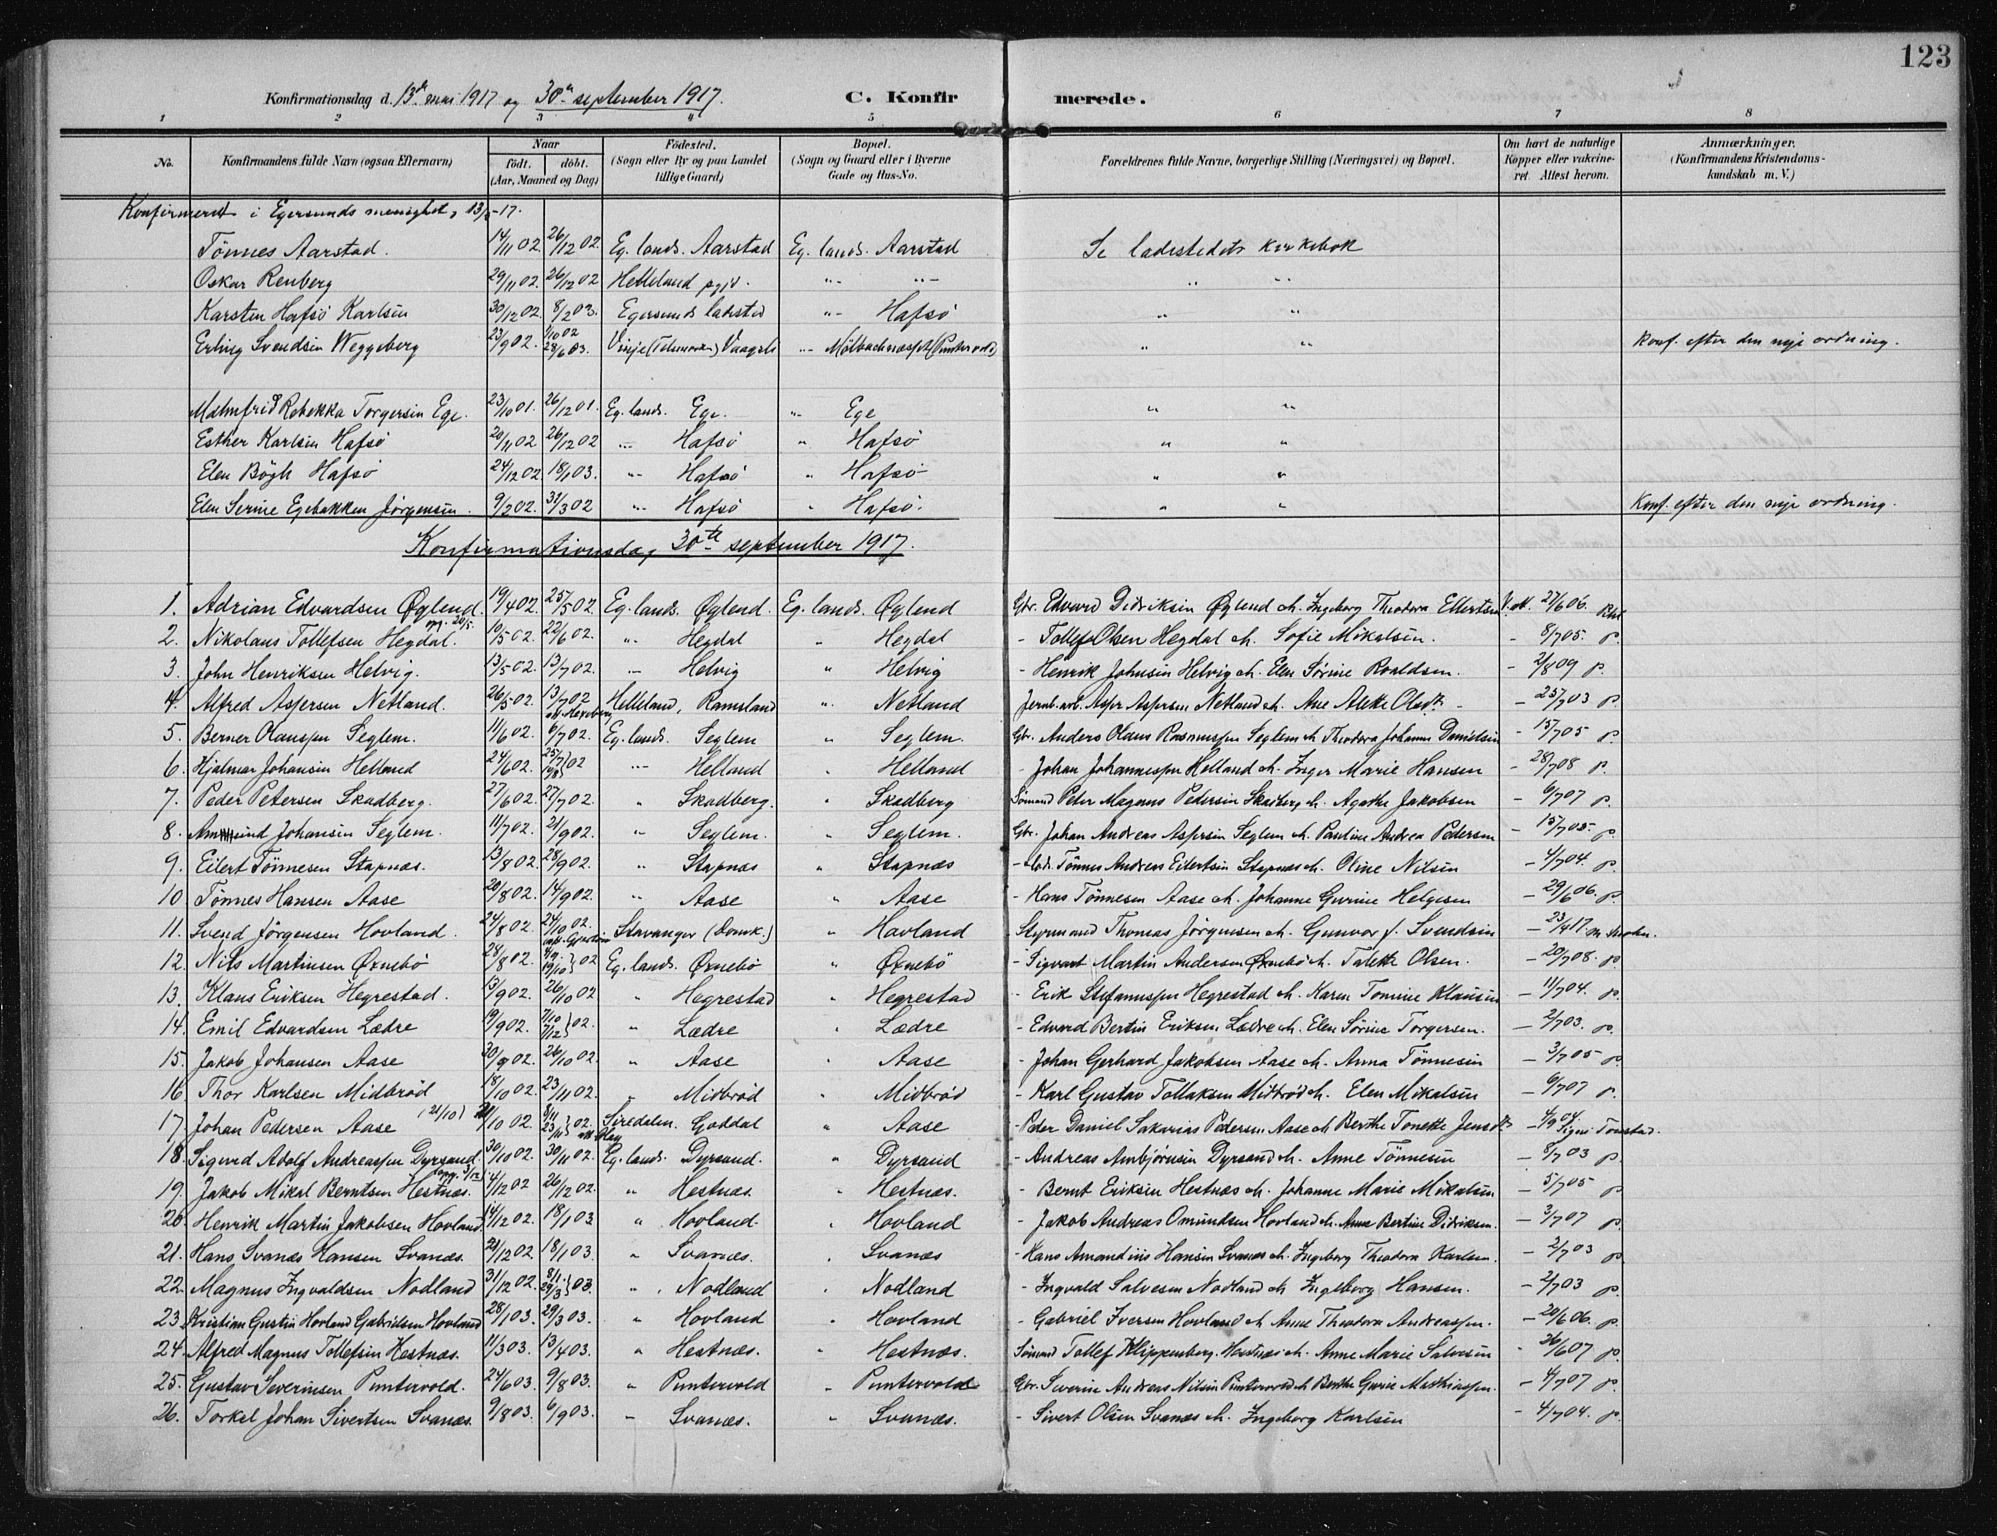 123
Konfirmationsdag d. 13de mai 1917 og 30te september 1917. C. Konfirmerede.
1 2 3 4 5 6 7 8
No. Konfirmandens fulde Navn (ogsaa Efternavn) Naar født. døbt. (Aar, Maaned og Dag) Fødested. (Sogn eller By og paa Landet tillige Gaard) Bopæl. (Sogn og Gaard eller i Byerne Gade og Hus-No. Forældrenes fulde Navne, borgerlige Stilling (Næringsvei) og Bopæl. Om havt de naturlige Kopper eller vakcineret. Attest herom. Anmærkninger. (Konfirmandens Kristendomskundskab m. V.)
Konfirmeret i Egersunds menighet, 13/5-17.
Tönnes Aarstad. 14/11 02. 26/12 02. Eg. lands. Aarstad Eg. lands. Aarstad Se ladestedets kirkebok
Oskar Renberg 29/11 02. 26/12 02 Helleland pgjd. " " " "
Karsten Hafsö Karlsen 30/12 02. 8/2 03. Egersunds ladested " Hafsö " "
Erling Svendsen Weggeberg 23/9 02. 28/6 03. Vinje (Telemarken) " " " Konf. efter den nye ordning.
Malmfrid Rebekka Torgersen Ege. 23/10 01. 26/12 01. Eg. lands. Ege. " Ege " "
Esther Karlsen Hafsö 20/11 02. 26/12 02 " Hafsö " Hafsö " "
Elen Bögh Hafsö 24/12 02. 18/1 03. " Hafsö " Hafsö " "
Elen Serine Egebakken Jörgensen. 9/2 02. 31/3 02 " Hafsö " Hafsö. " " Konf. efter den nye ordning.
Konfirmationsdag 30te september 1917.
1. Adrian Edvardsen Øglend. 19/4 02. 25/5 02. Eg. lands. Øglend Eg. lands. Øglend Gbr. Edvard Didriksen Øglend og h. Ingeborg Theodora Ellertsen V. att. 27/6 06.
2. Nikolaus Tollefsen Hegdal. 10/5 02. 22/6 02. " Hegdal " Hegdal - Tollef Olsen Hegdal og h. Sofie Mikalsen. - 8/7 05. P.
3. John Henriksen Helvig. 13/5 02. 13/7 02. " Helvig " Helvig - Henrik Johnsen Helvig og h. Elen Sörine Roaldsen. - 2/8 09 P.
4. Alfred Aspersen Netland. 26/5 02. 13/7 02 Helleland, Ramsland " Netland Jernb.arb. Asper Aspersen Netland og h. Ane Alette Olsdt. - 25/7 03 P.
5. Berner Olaussen Seglem. 11/6 02. 6/7 02. Eg. lands. Seglem " Seglem. Gbr. Anders Olaus Rasmussen Seglem og h. Theodora Johanne Danielsen - 15/7 05 P.
6. Hjalmar Johansen Helland 24/6 02. 25/7 02 " Helland " Helland - Johan Johannessen Helland og h. Inger Marie Hansen - 28/7 08 P.
7. Peder Petersen Skadberg. 27/6 02. 27/7 02. " Skadberg. " Skadberg Sömand Peter Magnus Pedersen Skadberg og h. Agathe Jakobsen - 6/7 07 P.
8. Amund Johansen Seglem. 11/7 02. 21/9 02. " Seglem. " Seglem. Gbr. Johan Andreas Aspersen Seglem og h. Pauline Andrea Pedersen - 15/7 05. P.
9. Eilert Tönnesen Stapnæs. 13/8 02. 28/9 02. " Stapnæs " Stapnæs Tönnes Andreas Eilertsen Stapnæs og h. Oline Nilsen - 4/7 04. P.
10. Tönnes Hansen Aase 20/8 02. 14/9 02. " Aase " Aase - Hans Tönnesen Aase og h. Johanne Gurine Helgesen - 29/6 06. P.
11. Svend Jörgensen Hovland. 24/8 02. 24/10 02. Stavanger (Domk.) " Hovland Styrmand Thomas Jörgensen og h. Gunvor f. Svendsen - 23/4 17.
12. Nils Martinsen Øxnebö 24/8 02. 4/9 19/10 02 Eg. lands. Øxnebö " Øxnebö - Sigvart Martin Andersen Øxnebö og h. Talette Olsen. - 20/7 08. P.
13. Klaus Eriksen Hegrestad. 13/9 02. 26/10 02 " Hegrestad " Hegrestad - Erik Stefanussen Hegrestad og h. Karen Tomine Klausen - 11/7 04. P.
14. Emil Edvardsen Lædre 19/9 02. 7/10 7/12 02. " Lædre " Lædre - Edvard Bertin Eriksen Lædre og h. Elen Sörine Torgersen. - 2/7 03. P.
15. Jakob Johansen Aase 30/9 02. 26/10 02. " Aase " Aase - Johan Gerhard Jakobsen Aase og h. Anna Tönnesen - 3/7 05 P.
16. Thor Karlsen Midbröd 18/10 02. 23/11 02. " Midbröd " Midbröd - Karl Gustav Tollaksen Midbröd og h. Elen Mikalsen - 6/7 07 P.
17. Johan Pedersen Aase (21/10) 21/10 02. 8/11 23/11 02. Siredalen. Goddal " Aase - Peder Daniel Sakarias Pedersen Aase og h. Berthe Tonette Jensdt. - 4/9 04.
18. Sigurd Adolf Andreassen Dyrsand. 30/10 02. 30/11 02 Eg. lands. Dyrsand. " Dyrsand - Andreas Ambjörnsen Dyrsand og h. Anne Tönnesen - 8/7 03 P.
19. Jakob Mikal Berntsen Hestnæs. 4/12 02 26/12 02. " Hestnæs. " Hestnæs. - Bernt Eriksen Hestnæs og h. Johanne Marie Mikalsen - 5/7 05 P.
20. Henrik Martin Jakobsen Hovland 14/12 02. 18/1 03 " Hovland. " Hovland - Jakob Andreas Omundsen Hovland og h. Anne Bertine Didriksen. - 3/7 07 P.
21. Hans Svanæs Hansen Svanæs. 21/12 02 18/1 03. " Svanæs. " Svanæs - Hans Amandius Hansen Svanæs og h. Ingeborg Theodora Karlsen. - 2/7 03 P.
22. Magnus Ingvaldsen Nodland 31/12 02. 8/1 29/3 03. " Nodland " Nodland - Ingvald Salvesen Nodland og h. Ingeborg Hansen. - 2/7 03 P.
23. Kristian Gustin Hovland Gabrielsen Hovland 28/1 03. 29/3 03. " Hovland " Hovland - Gabriel Iversen Hovland og h. Anne Theodora Andreassen. - 20/6 06. P.
24. Alfred Magnus Tollefsen Hestnæs. 11/3 03. 13/4 03. " Hestnæs. " Hestnæs. Sömand Tollef Klippenberg Hestnæs og h. Anne Marie Salvesen - 26/6 07 P.
25. Gustav Severinsen Puntervold. 24/6 03. 9/8 03. " Puntervold " Puntervold Gbr. Severin Andreas Nilsen Puntervold og h. Berthe Gurie Mathiassen. - 4/7 07 P.
26. Torkel Johan Sivertsen Svanæs. 9/8 03. 6/9 03. " Svanæs. " Svanæs. - Sivert Olsen Svanæs og h. Ingeborg Karlsen - 4/7 04. P.